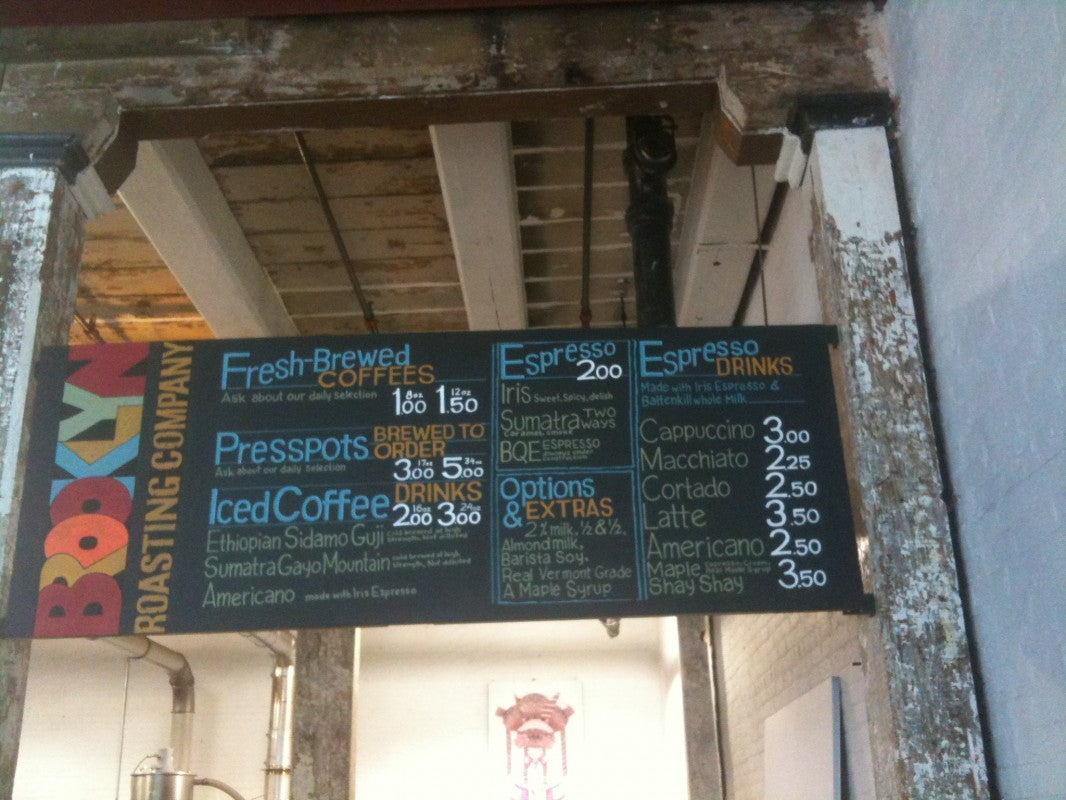 BROOKLYN
ROASTING COMPANY
Fresh-Brewed
COFFEES
Ask about our daily selection
8oz 1.00 12oz 1.50
Presspots BREWED TO ORDER
Ask about our daily selection
17oz 3.00 34oz 5.00
Iced Coffee DRINKS
16oz 2.00 24oz 3.00
Ethiopian Sidamo Guji
Sumatra Gayo Mountain cold brewed at high strength, Not diluted
Americano made with Iris Espresso
Espresso
2.00
Iris Sweet, Spicy, delish
Sumatra TWO WAYS
Caramel, smoke
BQE ESPRESSO
always under construction
Options
& EXTRAS
2% milk, ½ & ½,
Almond milk,
Barista Soy,
Real Vermont Grade
A Maple Syrup
Espresso
DRINKS
Made with Iris Espresso &
Battenkill whole Milk
Cappuccino 3.00
Macchiato 2.25
Cortado 2.50
Latte 3.50
Americano 2.50
Maple
Shay Shay 3.50